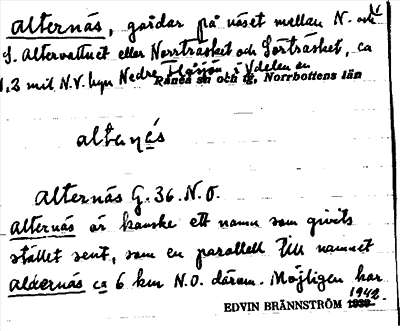 Alternäs, gårdar på näset mellan N. och
S. Altervattnet eller Norrträsket och Sörträsket, ca
1,2 mil N.V. byn Nedre i V delen av
Råneå sn och tg, Norrbottens län
altenäs
Alternäs G. 36. N.O.
Alternäs är kanske ett namn som givits
stället sent, som en parallell till namnet
Aldernäs ca 6 km N.O. därom. Möjligen har
1942.
EDVIN BRÄNNSTRÖM 1939